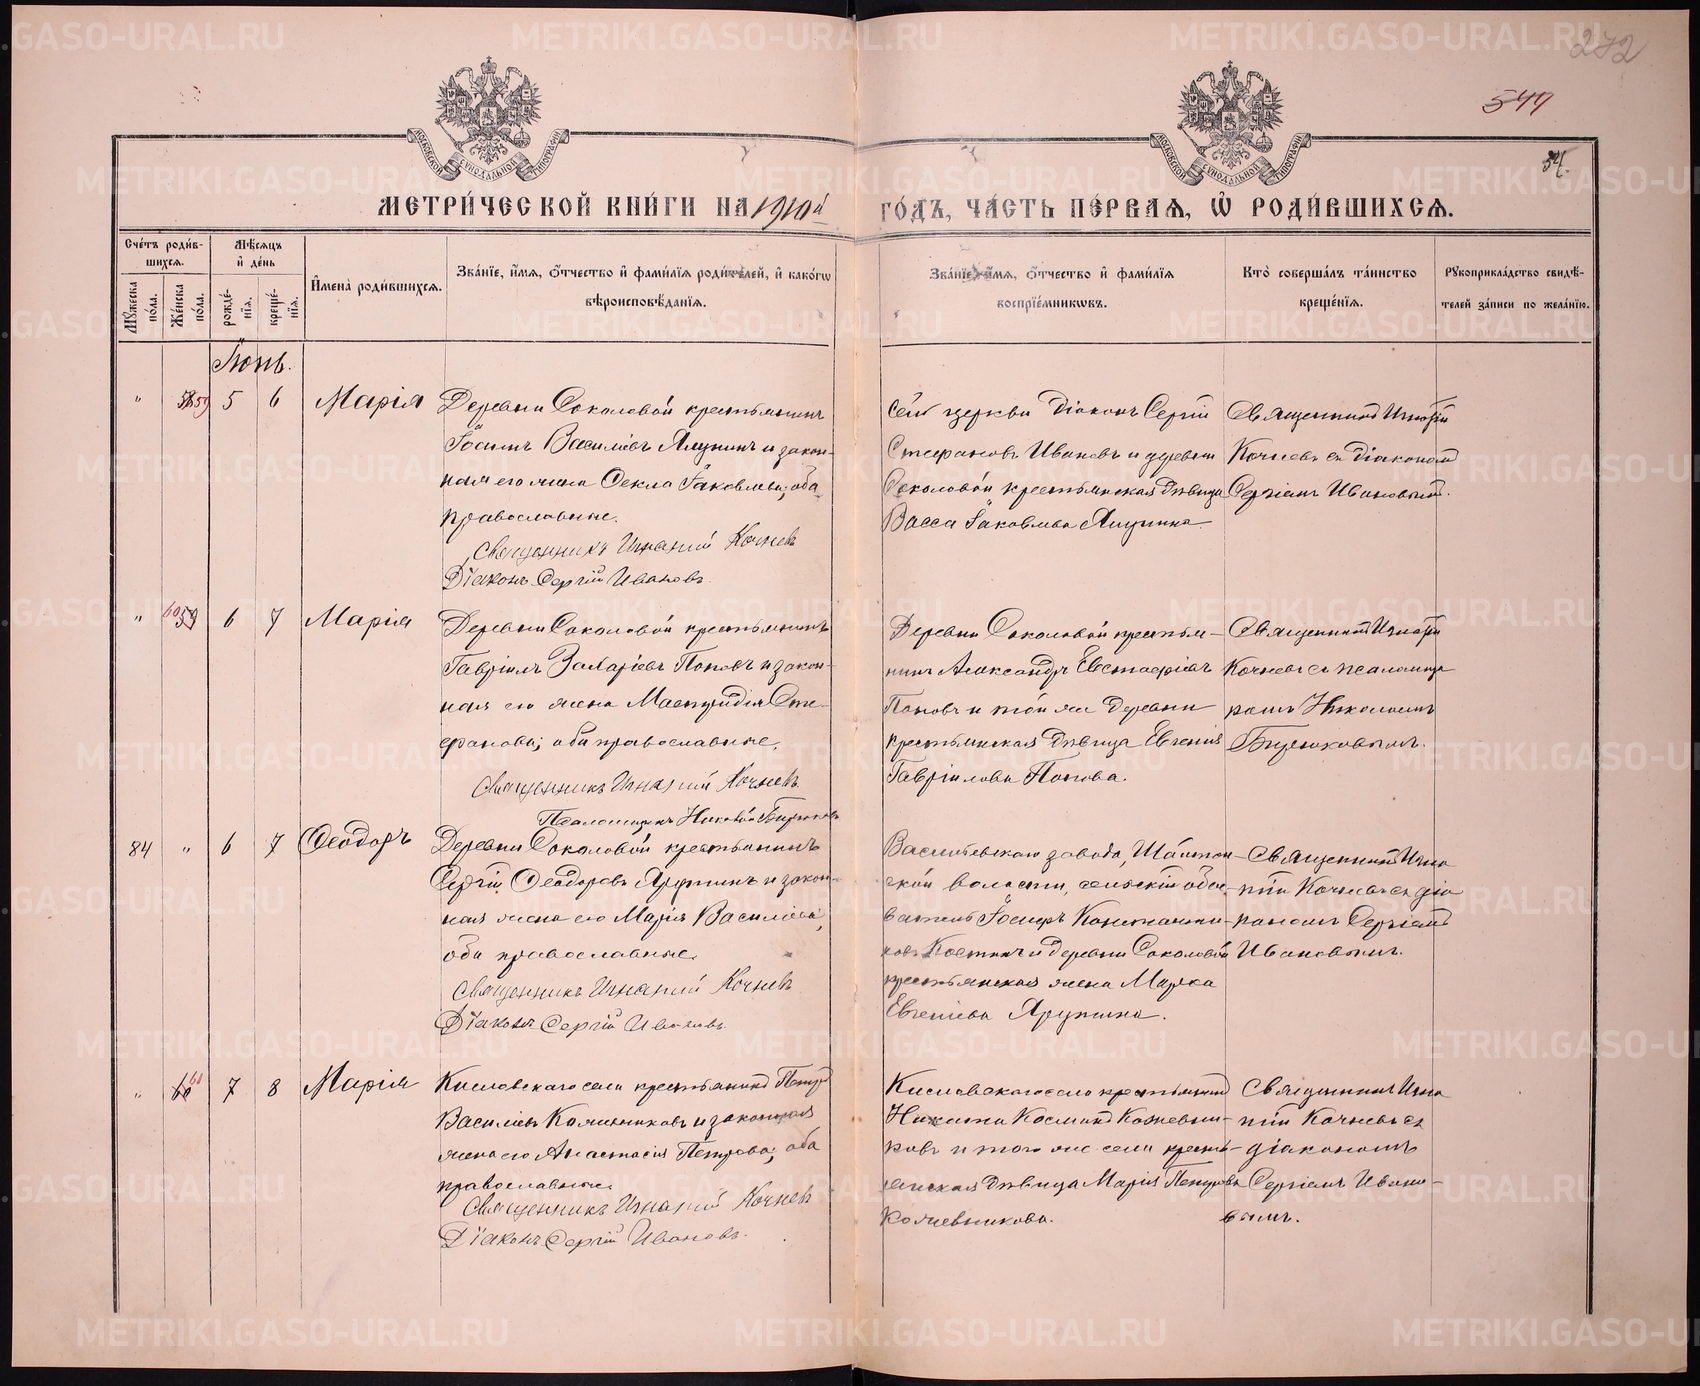 272
544
54.
МОСКОВСКОЙ СѴНОДАЛЬНОЙ ТИПОГРАФІИ
МОСКОВСКОЙ СѴНОДАЛЬНОЙ ТИПОГРАФІИ
МЕТРИ́ЧЕСКОЙ КНИ́ГИ НА 1910й ГО́ДЪ, ЧА́СТЬ ПЕ́РВАѦ, Ѡ РОДИ́ВШИХСѦ.
Сче́тъ роди́в-
шихсѧ.
Мꙋ́жеска по́ла.
Же́нска по́ла.
Мѣ́сѧцъ и҆ де́нь
рожде́-нїѧ.
креще́-нїѧ.
И҆мена̀ роди́вшихсѧ.
Зва́нїе, и҆́мѧ, ѻ҆́тчество и҆ фами́лїѧ роди́телей, и҆ како́гѡ
вѣроисповѣ́данїѧ.
Зва́нїе, и҆́мѧ, ѻ҆́тчество и҆ фами́лїѧ
воспрїе́мникѡвъ.
Кто̀ соверша́лъ та́инство
креще́нїѧ.
Рꙋкоприкла́дство свидѣ́-
телей за́писи по жела́нїю.
Іюнь.
" 58 59 5 6 Марія
Деревни Соколовой крестьянинъ
Іосифъ Василіевъ и закон-
ная его жена Ѳекла Іаковлева; оба
православные.
Священникъ Игнатій Кочневъ
Діаконъ Сергій Ивановъ.
Сей церкви Діаконъ Сергій
Стефановъ Ивановъ и деревни
Соколовой крестьянская дѣвица
Васса Іаковлева
Священникъ Игнатій
Кочневъ съ Діакономъ
Сергіемъ Ивановымъ.
" 60 59 6 7 Марія
Деревни Соколовой крестьянинъ
Гавріилъ Захаріевъ Поповъ и закон-
ная его жена Мастридія Сте-
фанова; оба православные.
Священникъ Игнатій Кочневъ
Псаломщикъ Николай Бирюковъ
Деревни Соколовой крестья-
нинъ Александръ Евстафіевъ
Поповъ и той же деревни
крестьянская дѣвица Евгенія
Гавріилова Попова.
Священникъ Игнатій
Кочневъ съ псаломщи
комъ Николаемъ
Бирюковымъ.
84 " 6 7 Ѳеодоръ
Деревни Соколовой крестьянинъ
Сергій Ѳеодоровъ и закон-
ная жена его Марія Василіева;
оба православные.
Священникъ Игнатій Кочневъ
Діаконъ Сергій Ивановъ.
завода, Шайтан-
ской волости, сельскій обы-
ватель Іосифъ Константи-
новъ Костинъ и деревни Соколовой
крестьянская жена
Евгеніева
Священникъ Игна
тій Кочневъ съ діа
кономъ Сергіемъ
Ивановымъ.
" 60 7 8 Марія
Кисловскаго села крестьянинъ Петръ
Василіевъ Кожевниковъ и законная
жена его Анастасія Петрова; оба
православные.
Священникъ Игнатій Кочневъ
Діаконъ Сергій Ивановъ.
Кисловскаго села крестьянинъ
Никита Косминъ Кожевни-
ковъ и того же села кресть-
янская дѣвица Марія Петрова
Кожевникова.
Священникъ Игна
тій Кочневъ съ
діакономъ
Сергіемъ Ивано-
вымъ.
METRIKI.GASO-URAL.RU